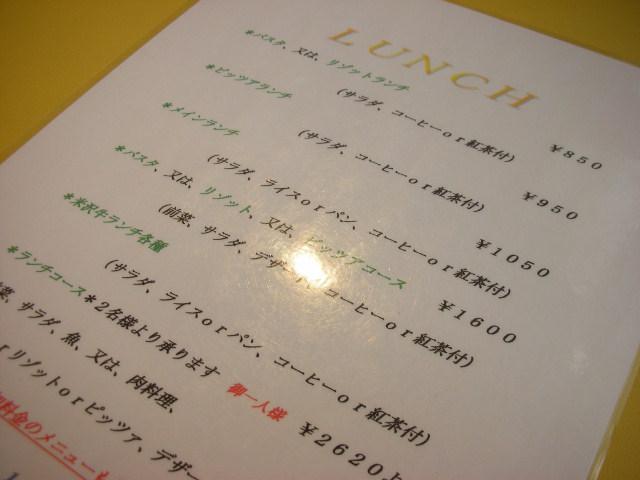 LUNCH
*パスタ、又は、リゾットランチ
(サラダ、コーヒーor紅茶付) ¥850
*ピッツアランチ
(サラダ、コーヒーor紅茶付) ¥950
*メインランチ
(サラダ、ライスorパン、コーヒーor紅茶付) ¥1050
*パスタ、又は、リゾット、又は、ピッツアコース
(前菜、サラダ、デザート、コーヒーor紅茶付) ¥1600
*米沢牛ランチ各種
(サラダ、ライスorパン、コーヒーor紅茶付)
*ランチコース*2名様より承ります 御一人様 ¥2620
菜、サラダ、魚、又は、肉料理、
rリゾットorピッツァ、デザー
料金のメニュー